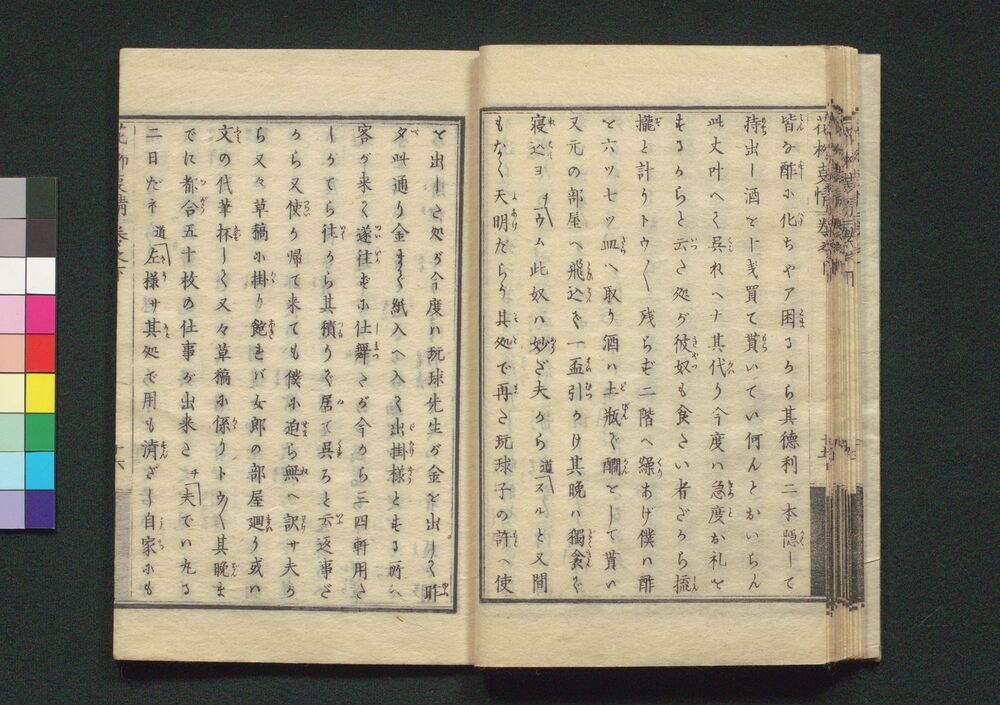 皆な酢に化ちやア困るから其徳利二本隠して
持出し酒を下戔買て貰いてい何んとかいちん
此丈叶へて呉れへナ其代り今度は急度か礼を
するからと云た処が彼奴も食たい者だから揺
攏と計りトウ〳〵残らず二階へ繰あげ僕は酢
を六ツ七ツ皿へ取り酒は土瓶で燗をして貰い
又元の部屋へ飛込で一盃引かけ其晩は獨食で
寝込ヨ チウム此奴は妙だ夫から 道スルと又間
もなく天明だらう其処で再た玩球子の許へ使
を出した処が今度は玩球先生が金を出して昨
夕此通り金まで紙入へ入て出掛様とする所へ
客が来て遂往ずに仕舞たが今から三四軒用た
しがてら往から其積りで居て呉ろと云返事だ
から又使が帰て来ても僕に迫ら無へ訳サ夫か
ら又々草稿に掛り飽れば女郎の部屋廻り或は
文の代筆抔して又々草稿に係りトウ〳〵其晩ま
でに都合五十枚の仕事が出来た チ夫でい丸る
二日だネ 道左様サ其処で用も済だし自家にも